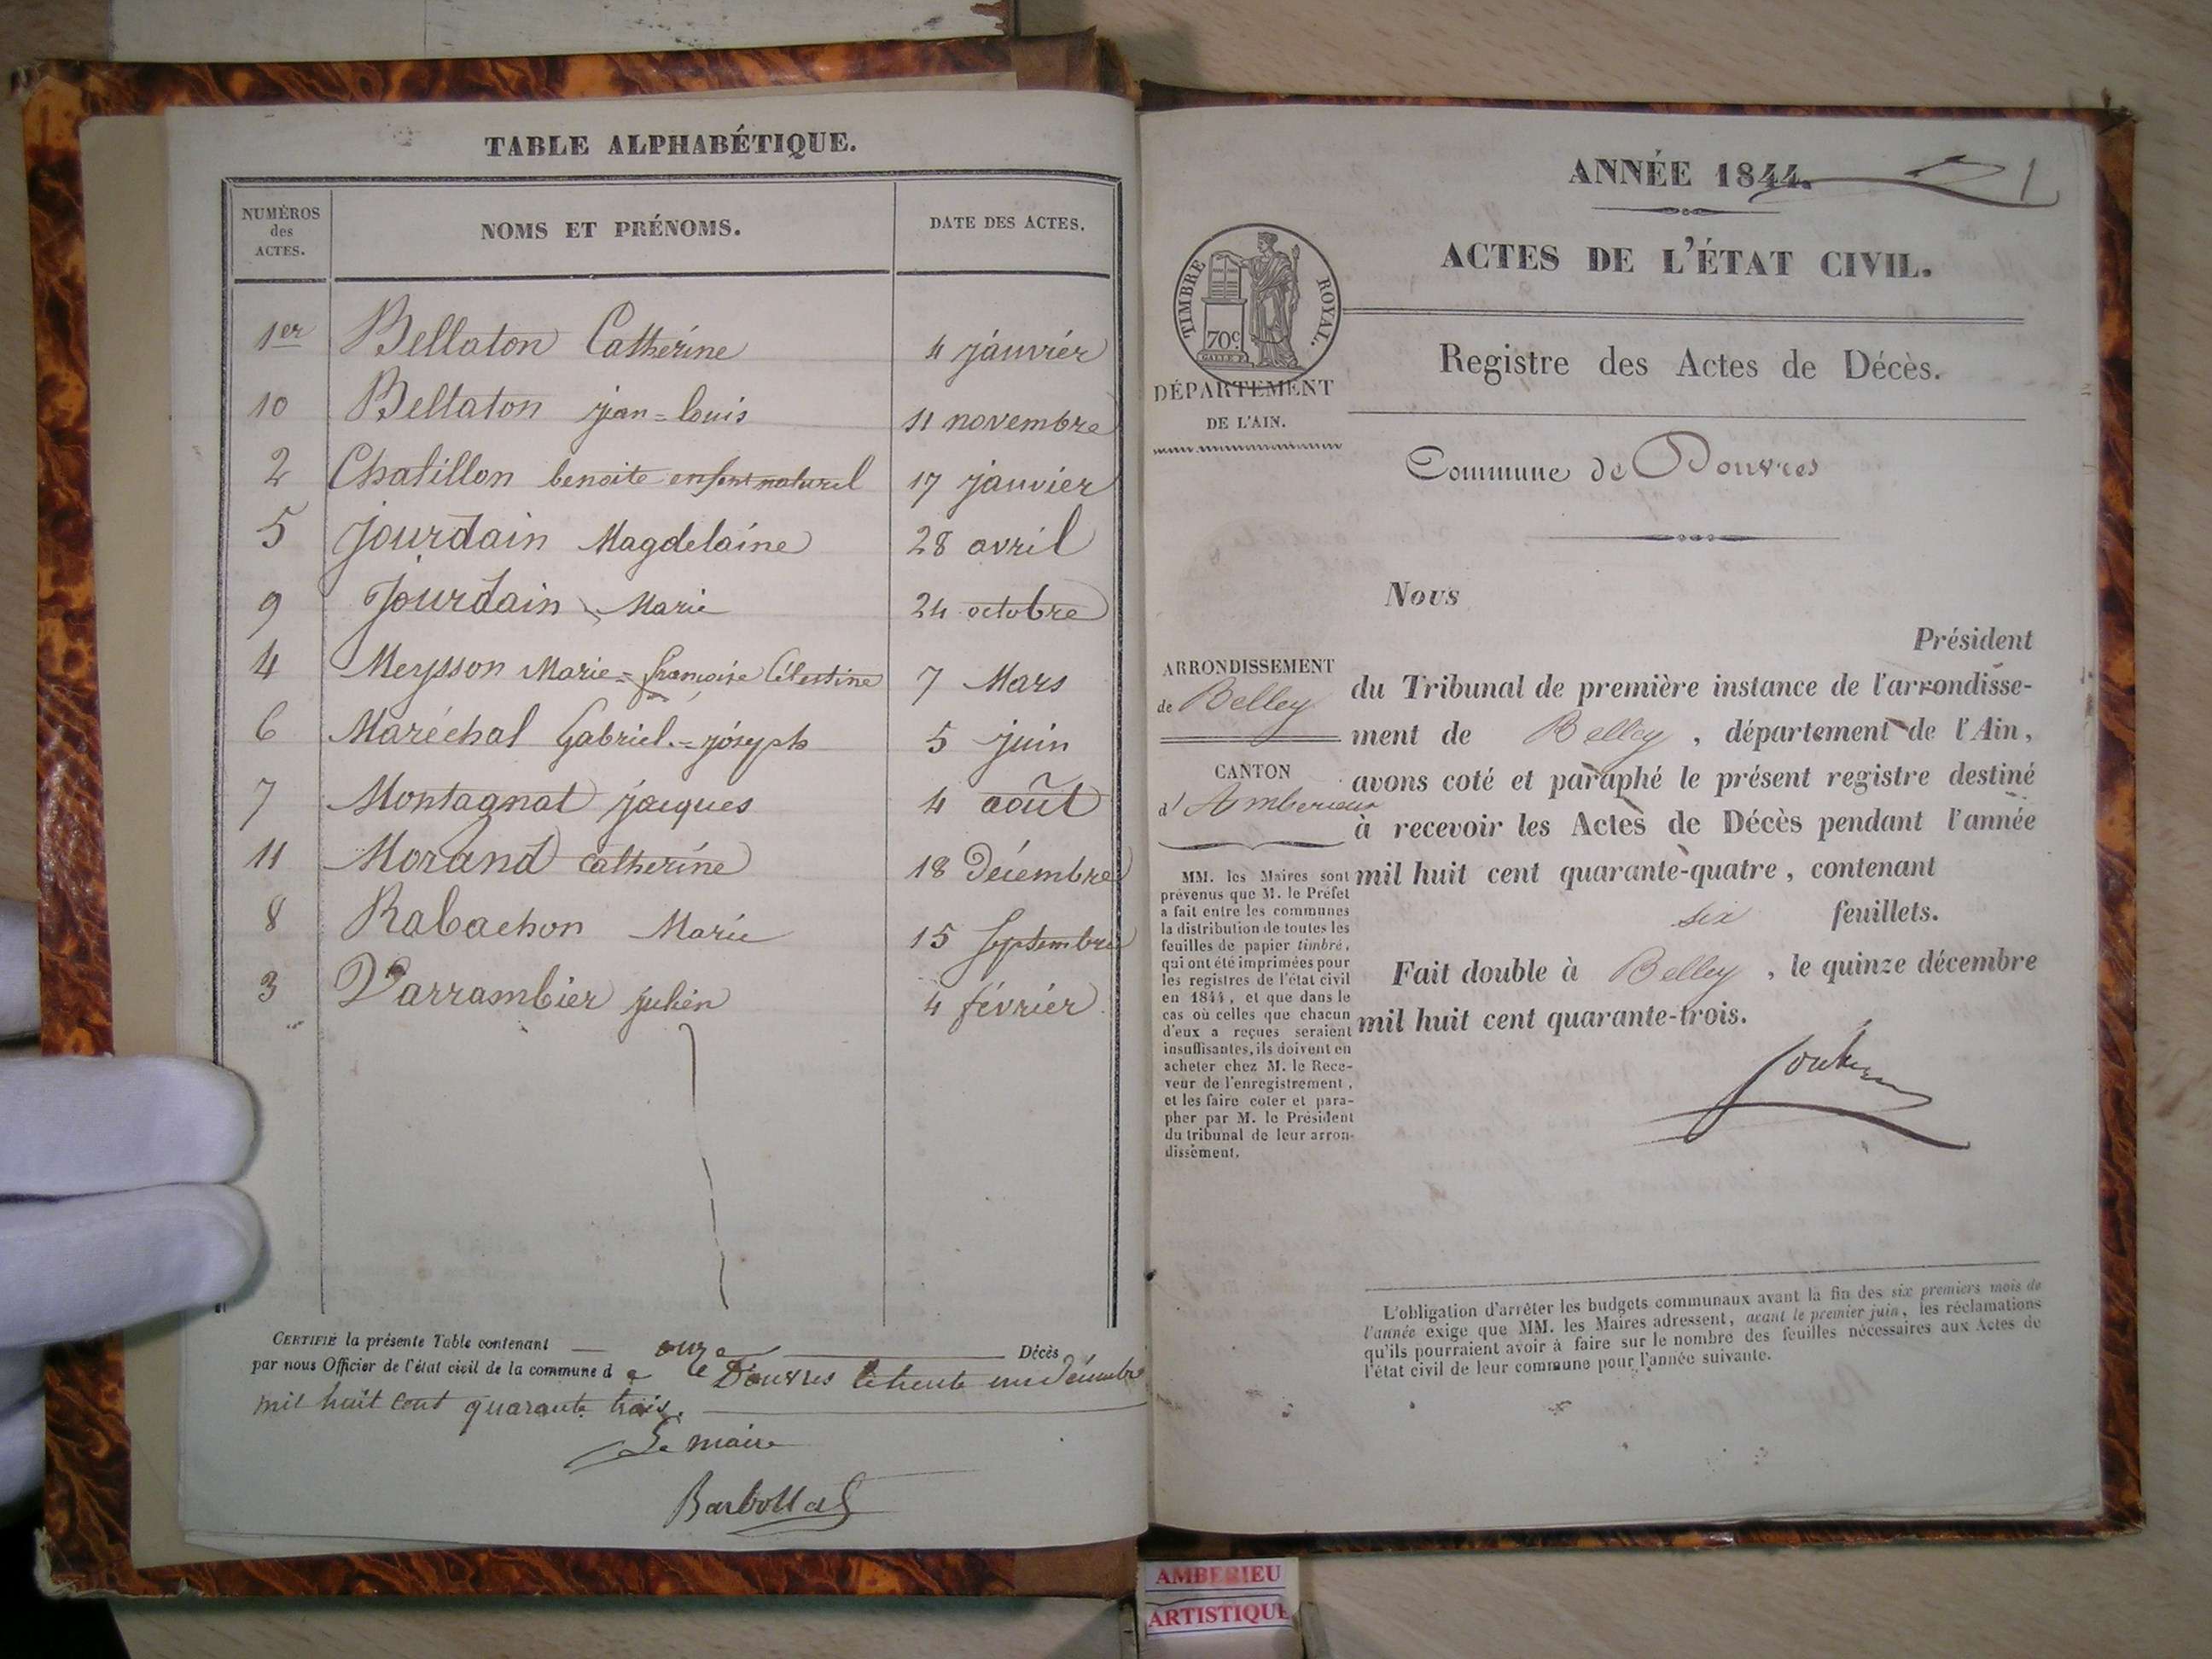 TABLE ALPHABÉTIQUE.
NUMÉROS des ACTES. NOMS ET PRÉNOMS. DATE DES ACTES.
1er Bellaton Catherine 4 janvier
10 Bellaton jean=louis 11 novembre
2 Chatillon benoite enfant naturel 17 janvier
5 Jourdain Magdelaine 28 avril
9 Jourdain Marie 24 octobre
4 Meysson Marie=françoise Célestine 7 Mars
6 Maréchal Gabriel=joseph 5 juin
7 Montagnat jacques 4 août
11 Morand Catherine 18 Décembre
8 Rabachon Marie 15 Septembre
3 Varrambier julien 4 février
CERTIFIÉ la présente Table contenant onze Décès
par nous Officier de l'état civil de la commune de Douvres le trente un décembre
mil huit cent quarante trois.
Le maire
Barbollat
ANNÉE 1844. 1
ACTES DE L'ÉTAT CIVIL.
TIMBRE ROYAL.
70c
Registre des Actes de Décès.
DÉPARTEMENT
DE L'AIN.
Commune de Douvres
Nous
Président
ARRONDISSEMENT
de Belley
CANTON
d'Amberieux
du Tribunal de première instance de l'arrondisse-
ment de Belley, département de l'Ain,
avons coté et paraphé le présent registre destiné
à recevoir les Actes de Décès pendant l'année
mil huit cent quarante-quatre, contenant
six feuillets.
Fait double à Belley, le quinze décembre
mil huit cent quarante-trois.
MM. les Maires sont
prévenus que M. le Préfet
a fait entre les communes
la distribution de toutes les
feuilles de papier timbré,
qui ont été imprimées pour
les registres de l'état civil
en 1844, et que dans le
cas où celles que chacun
d'eux a reçues seraient
insuffisantes, ils doivent en
acheter chez M. le Rece-
veur de l'enregistrement,
et les faire coter et para-
pher par M. le Président
du tribunal de leur arron-
dissement.
L'obligation d'arrêter les budgets communaux avant la fin des six premiers mois de
l'année exige que MM. les Maires adressent, avant le premier juin, les réclamations
qu'ils pourraient avoir à faire sur le nombre des feuilles nécessaires aux Actes de
l'état civil de leur commune pour l'année suivante.
AMBERIEU
ARTISTIQUE